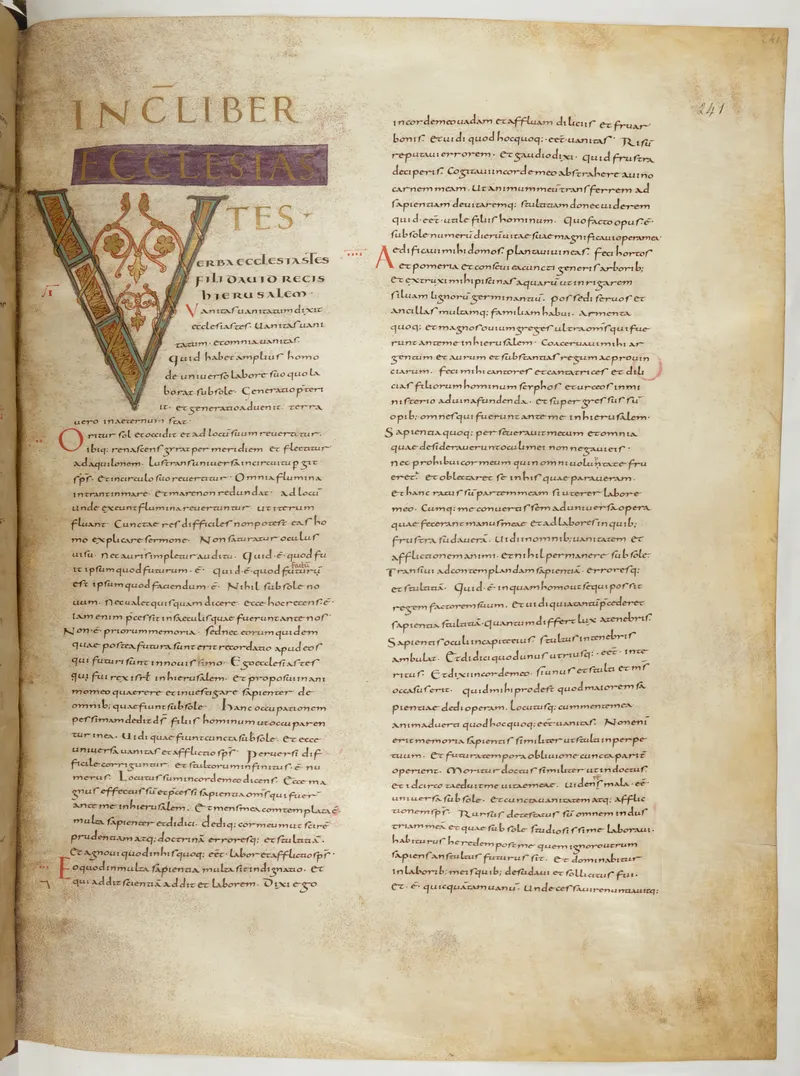 241
INC̅ LIBER
ECCLESIAS
TES
VERBA ECCLESIASTES
FILI DAUID REGIS
HIERUSALEM ·
Vanitas uanitatum dixit
ecclesiastes. Uanitas uani
tatum. et omnia uanitas.
Quid habet amplius homo
de uniuerso labore suo quo la
borat sub sole. Generatio p̅terit
it. et generatio aduenit. terra
uero in aeternum stat.
Oritur sol et occidit et ad locu̅ suum reuertitur.
ibiq; renascens girat per meridiem et flectitur
ad aquilonem. Lustrans uniuersa in circuitu p̅git
sp̅s. et in circulo suo reuertitur. Omnia flumina
intrant in mare. et mare non redundat. ad locu̅
unde exeunt flumina reuertuntur. ut iterum
fluant. Cunctae res difficiles non potest eas ho
mo explicare sermone. Non saturatur oculus
uisu. nec auris impletur auditu. Quid ·ē· quod fu
it ipsum quod futurum ·ē· quid ·ē· quod factu̅
est ipsum quod faciendum ·ē· Nihil sub sole no
uum. nec ualet quisquam dicere. ecce hoc recens ·ē·
iam enim p̅cessit in saeculis quae fuerunt ante nos.
Non ·ē· priorum memoria. sed nec eorum quidem
quae postea futura sunt erit recordatio apud eos
qui futuri sunt in nouissimo. Ego ecclesiastes
qui fui rex isr̅l in hierusalem. et proposui in ani
mo meo quaerere et inuestigare sapienter de
omnib; quae fiunt sub sole. Hanc occupationem
pessimam dedit d̅s filiis hominum ut occuparen
tur in ea. Uidi quae fiunt cuncta sub sole. et ecce
uniuersa uanitas et afflictio sp̅s. Peruersi dif
ficile corriguntur. et stultorum infinitus ·ē· nu
merus. Locutus sum in corde meo dicens. Ecce ma
gnus effectus su̅ et p̅cessi sapientia om̅s qui fuer̅
ante me in hierusalem. et mens mea contemplata ·ē·
multa sapienter et didici. dediq; cor meum ut scire̅
prudentiam atq; doctrina̅ erroresq; et stultitia̅.
et agnoui quod in his quoq; eēt labor et afflictio sp̅s.
Eo quod in multa sapientia multa sit indignatio. et
qui addit scientia̅ addit et laborem. Dixi ego
in corde meo uadam et affluam diliciis et fruar
bonis. et uidi quod hoc quoq; eēt uanitas. Risu̅
reputaui errorem. et gaudio dixi. quid frustra
deciperis. Cogitaui in corde meo abstrahere a uino
carnem meam. ut animum meu̅ transferrem ad
sapientiam deuitaremq; stultitiam donec uiderem
quid eēt utile filiis hominum. Quo facto opus ·ē·
sub sole numeru̅ dieru̅ uitae suae magnificaui opera mea
Aedificaui mihi domos. plantaui uineas. feci hortos
et pomeria et conseui ea cuncti generis arborib;
et extruxi mihi piscinas aquaru̅ ut inrigarem
siluam lignoru̅ germinantiu̅. possedi seruos et
ancillas multamq; familiam habui. Armenta
quoq; et magnos ouium greges ultra om̅s qui fue
runt ante me in hierusalem. Coaceruaui mihi ar
gentum et aurum et substantias regum ac prouin
ciarum. feci mihi cantores et cantatrices et dili
cias filiorum hominum scyphos et urceos in mi
nisterio ad uina fundenda. et supergressus su̅
opib; omnes qui fuerunt ante me in hierusalem.
Sapientia quoq; perseuerauit mecum et omnia
quae desiderauerunt oculi mei non negaui eis.
nec prohibui cor meum quin omni uoluptate fru
eret̅. et oblectaret se in his quae paraueram.
et hanc ratus su̅ partem meam si uterer labore
meo. Cumq; me conuertissem ad uniuersa opera
quae fecerant manus meae et ad labores in quib;
frustra sudauera̅. Uidi in omnib; uanitatem et
afflictionem animi. et nihil permanere sub sole.
Transiui ad contemplandam sapientia̅. erroresq;
et stultitia̅. Quid ·ē· inquam homo ut sequi possit
regem factorem suum. et uidi quia tantu̅ p̅cederet
sapientia stultitia̅. quantum differt lux a tenebris
Sapientis oculi in capite eius. stultus in tenebris
ambulat. et didici quod unus utriusq; eēt inte
ritus. et dixi in corde meo. si unus et stulti et m̅s
occasus erit. quid mihi prodest quod maiorem sa
pientiae dedi operam. Locutusq; cum mente mea
animaduerti quod hoc quoq; eēt uanitas. Non eni̅
erit memoria sapientis similiter ut stulti in perpe
tuum. et futura tempora obliuione cuncta parit̅
operient. Moritur doctus similiter ut indoctus.
et idcirco taeduit me uitae meae. uidens mala ·eē·
uniuersa sub sole. et cuncta uanitatem atq; afflic
tionem sp̅s. Rursus detestatus su̅ omnem indus
triam mea̅ et quae sub sole studiosissime laboraui.
habiturus heredem post me quem ignoro utrum
sapiens an stultus futurus sit. et dominabitur
in laborib; meis quib; desudaui et sollicitus fui.
et ·ē· quicquam tam uanu̅. Unde cessaui renuntiauitq;